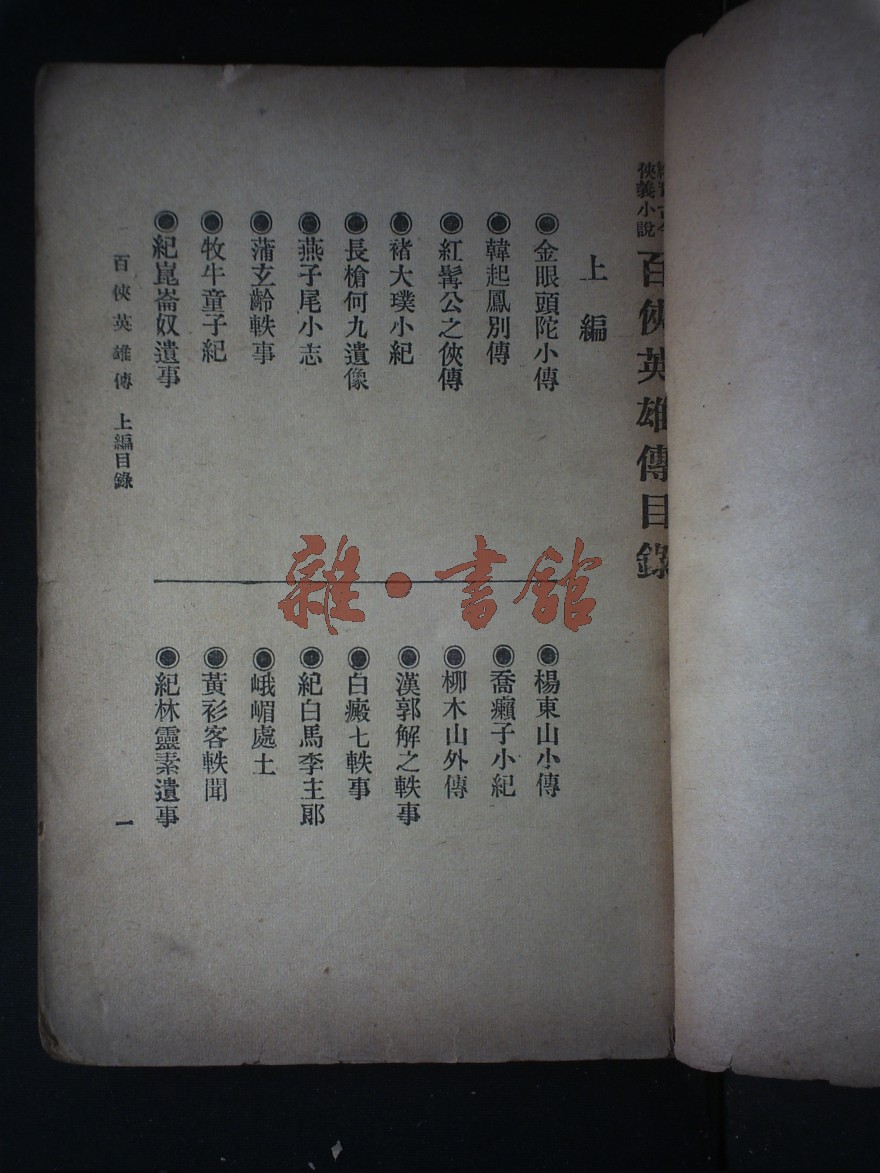 俠義小說
百俠英雄傳目錄
上編
◉金眼頭陀小傳
◉韓起鳳別傳
◉紅髯公之俠傳
◉褚大璞小紀
◉長槍何九遺像
◉燕子尾小志
◉蒲玄齡軼事
◉牧牛童子紀
◉紀崑崙奴遺事
◉楊東山小傳
◉喬癩子小紀
◉柳木山外傳
◉漢郭解之軼事
◉白癜七軼事
◉紀白馬李主郎
◉峨嵋處士
◉黃衫客軼聞
◉紀林靈素遺事
百俠英雄傳 上編目錄
一
雜·書館